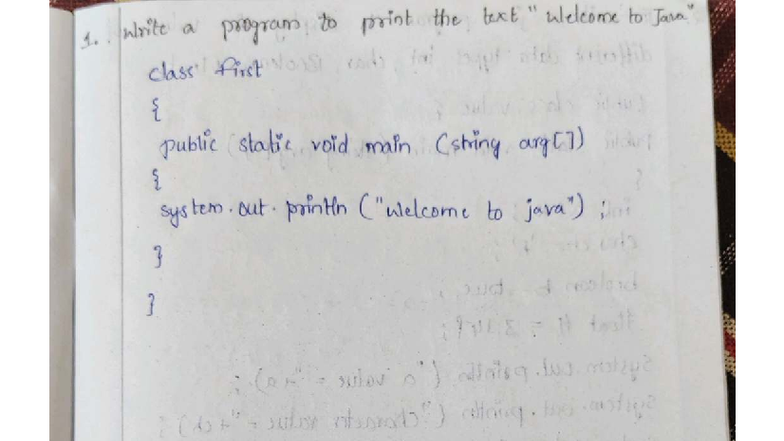 1. Write a program to print the text "Welcome to Java"
class first
{
public static void main (string arg[])
{
system.out.println ("Welcome to java") ;
}
}